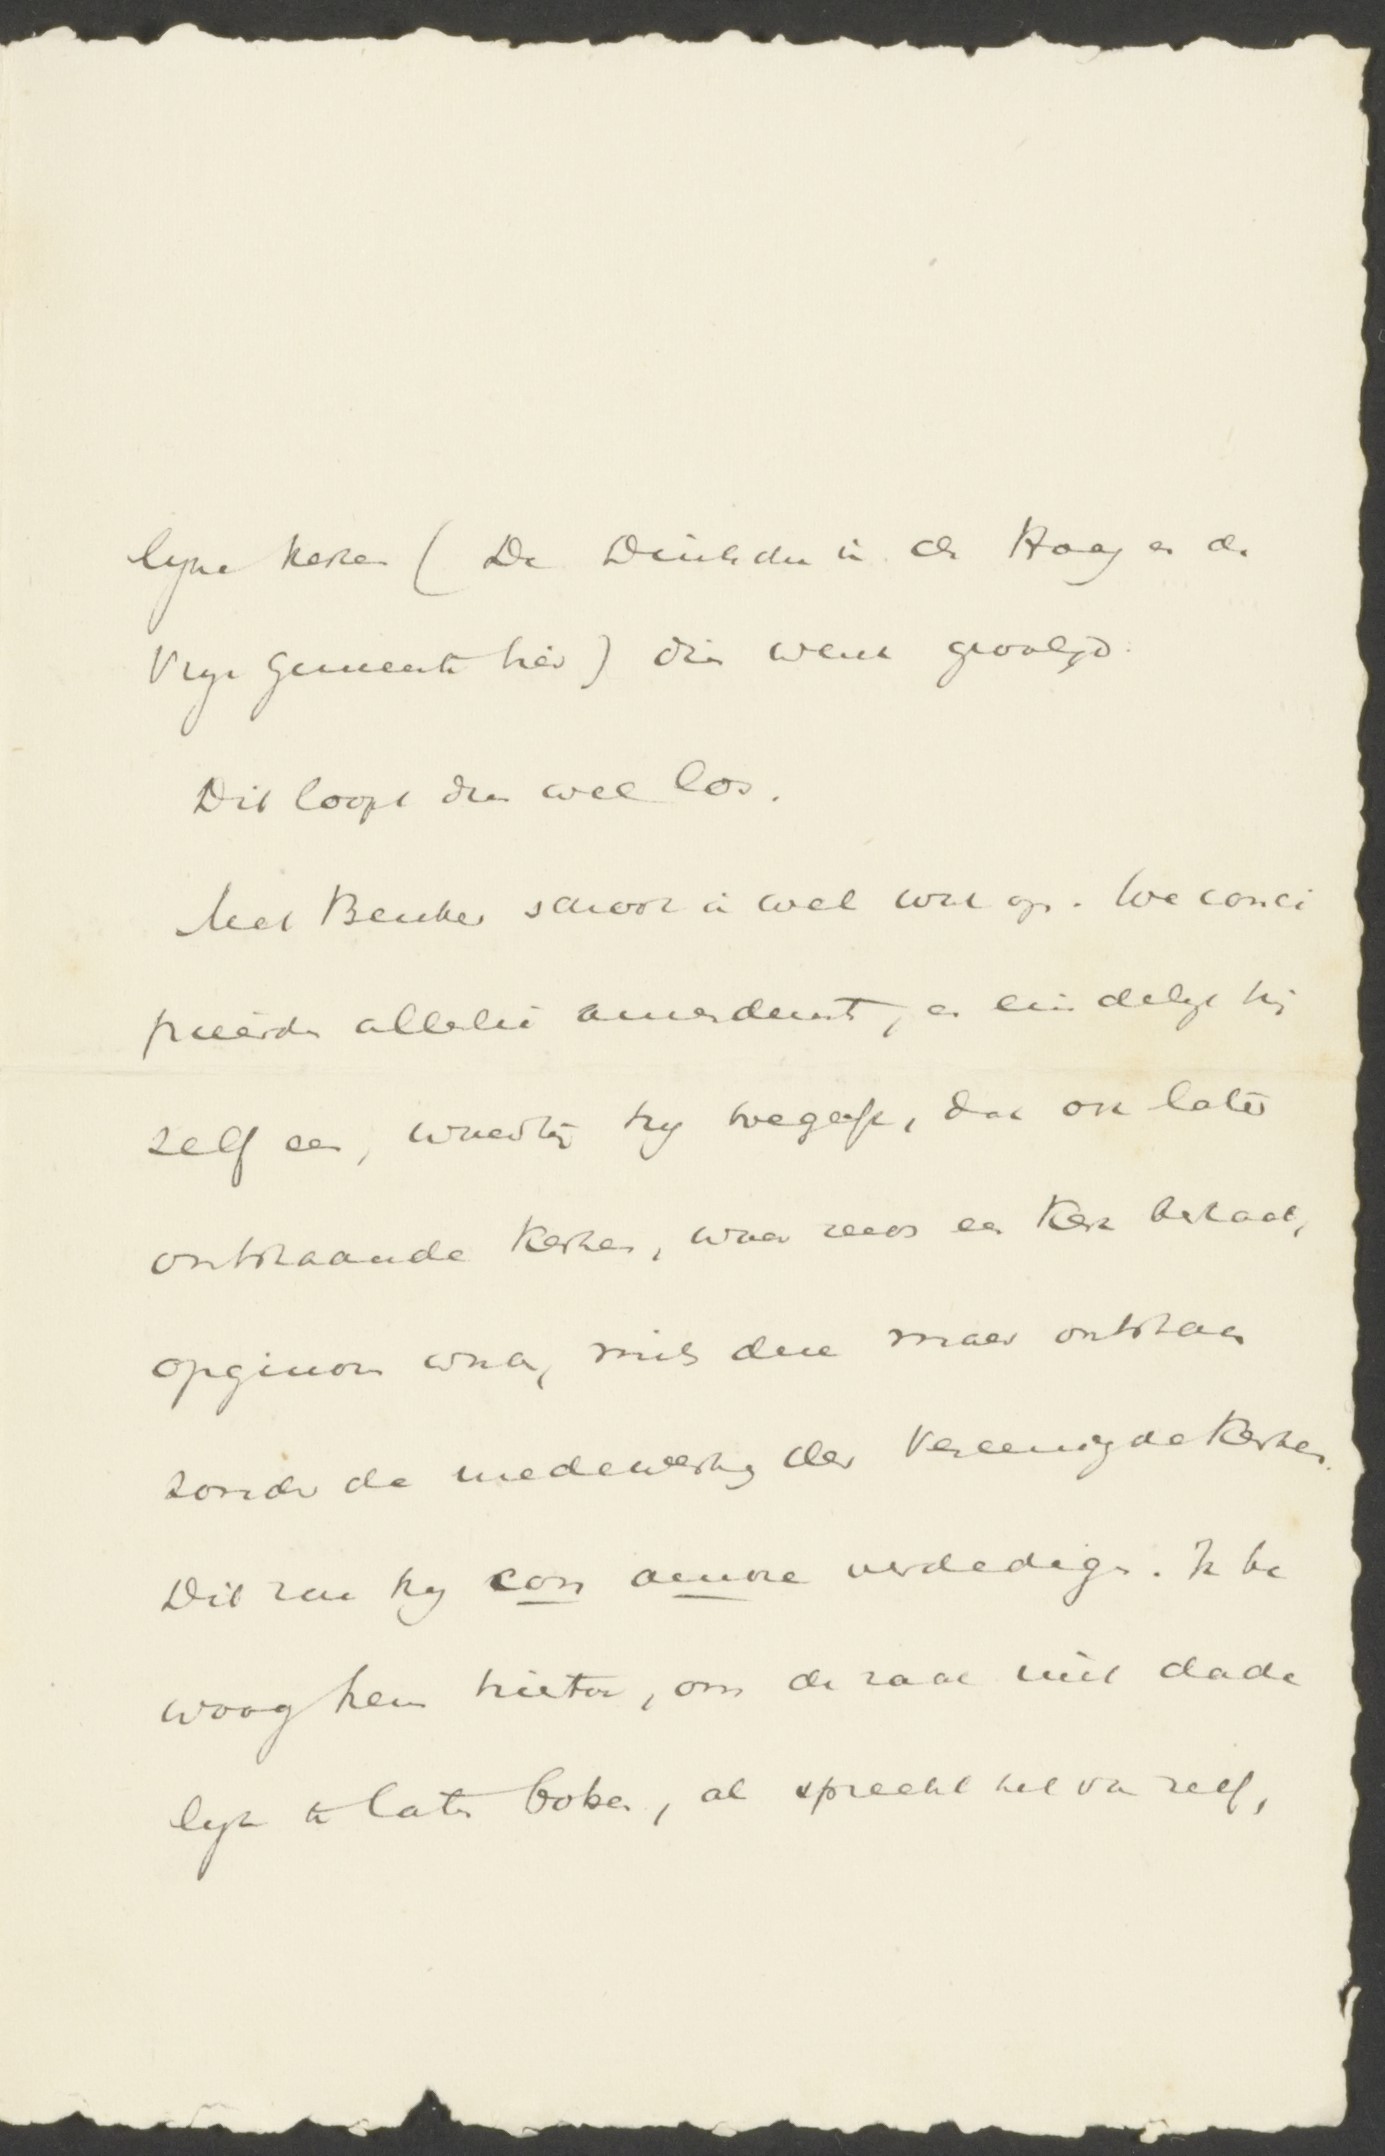 lijke kerken ( De Duinhdu in den Haag en de
Vrije Gemeente hier) die werd gevolgd.
Dit loopt dus wel los.
Met Beuker schoot ik wel wat op. We conci
pieerden allerlei amendement, en eindelijk hij
zelf een, waarbij hij toegeeft, dat ook later
ontstaande Kerken, waar reeds een Kerk bestaat,
opgenomen worden, mits deze maar ontstaan
zonder de medewerking der Vereenigde Kerken.
Dit zou hij con amore verdedigen. Ik be
woog hem hiertoe, om de zaak niet dade
lijk te laten boken, al spreekt het van zelf,